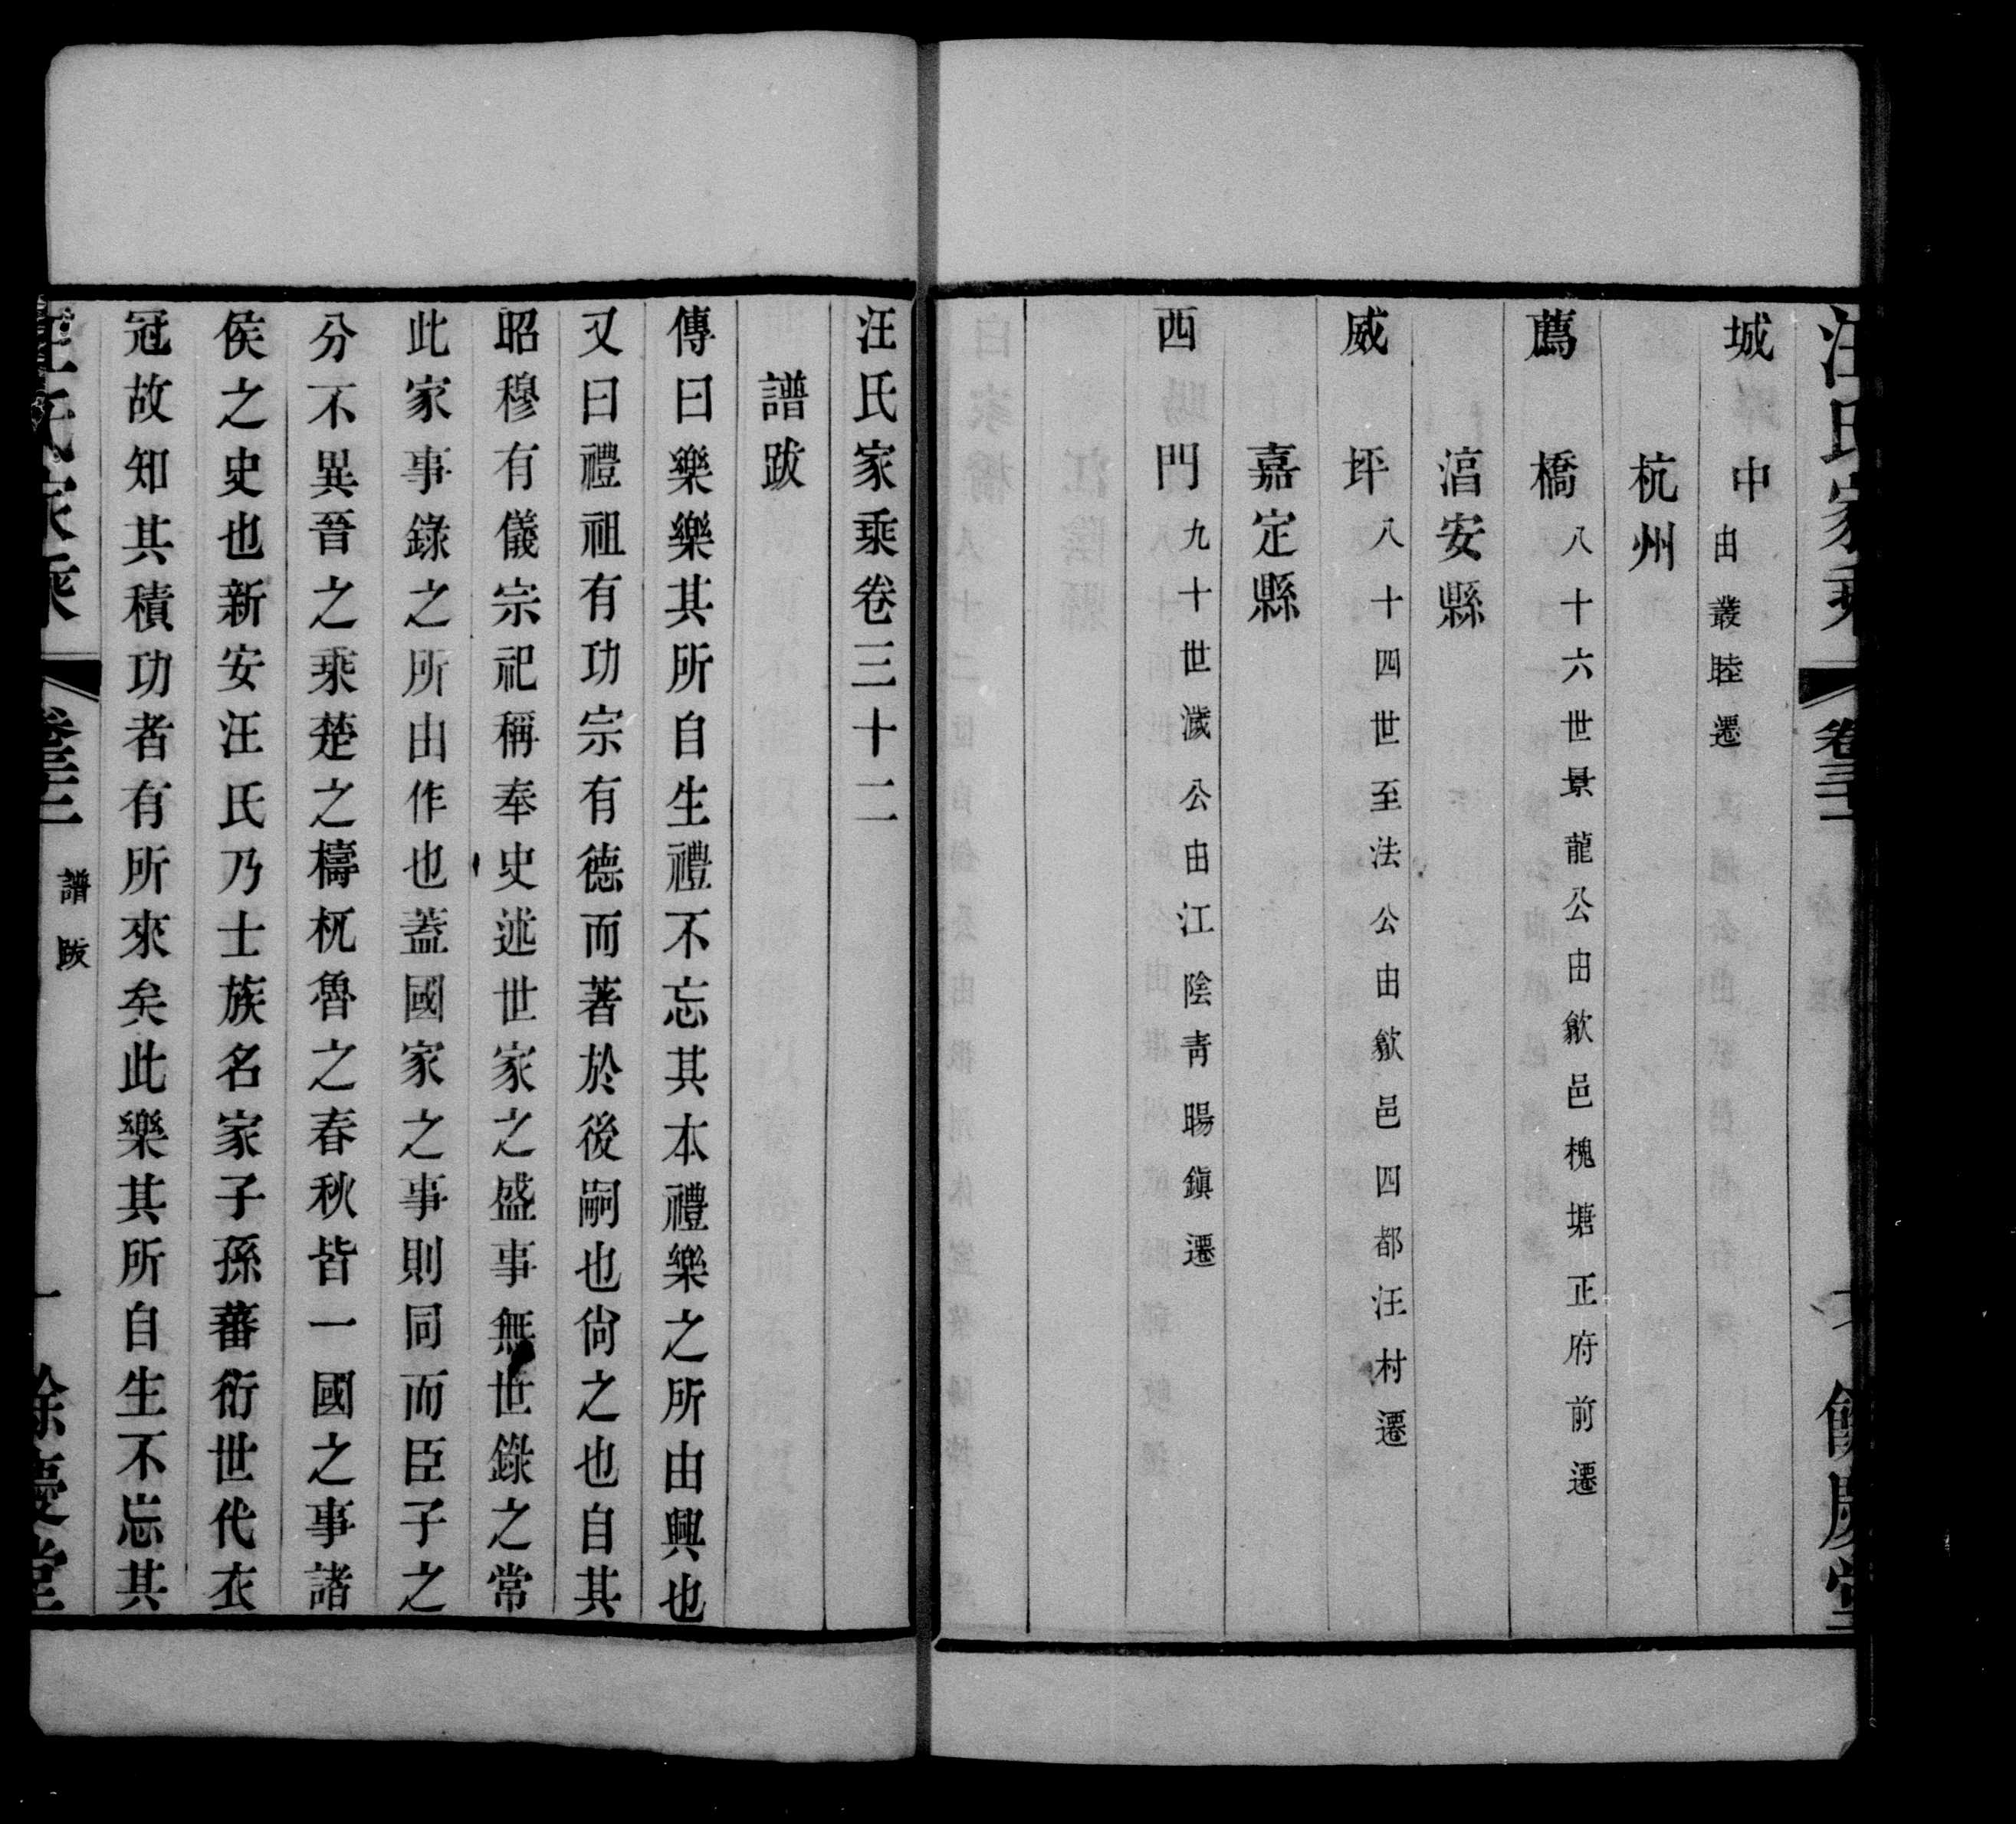 汪氏家乘
卷三十一
餘慶堂
城中由叢睦遷
杭州
薦橋八十六世景龍公由歙邑槐塘正府前遷
淐安縣
威坪八十四世至法公由歙邑四都汪村遷
嘉定縣
西門九十世濊公由江陰青暘鎮遷
汪氏家乘卷三十二
譜跋
傳曰樂樂其所自生禮不忘其本禮樂之所由興也
又曰禮祖有功宗有德而著於後嗣也尙之也自其
昭穆有儀宗祀稱奉史述世家之盛事無世錄之常
此家事錄之所由作也蓋國家之事則同而臣子之
分不異晉之乘楚之檮杌魯之春秋皆一國之事諸
侯之史也新安汪氏乃士族名家子孫蕃衍世代衣
冠故知其積功者有所來矣此樂其所自生不忘其
汪氏家乘
卷三十二
譜跋
一
餘慶堂